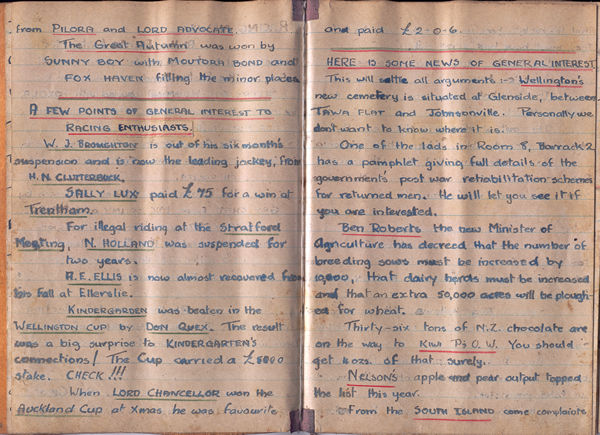 from PILORA and LORD ADVOCATE.
The Great Autumn was won by
SUNNY BOY with MOUTORA BOND and
FOX HAVEN filling the minor places
A FEW POINTS OF GENERAL INTEREST TO
RACING ENTHUSIASTS.
W. J. BROUGHTON is out of his six month's
suspension and is now the leading jockey, from
H. N. CLUTTERBUCK.
SALLY LUX paid £75 for a win at
Trentham.
For illegal riding at the Stratford
Meeting, N. HOLLAND was suspended for
two years.
A. E. ELLIS is now almost recovered from
his fall at Ellerslie.
KINDERGARDEN was beaten in the
WELLINGTON CUP by DON QUEX. The result
was a big surprise to KINDERGARTEN'S
connections! The Cup carried a £5000
stake. CHECK!!!
When LORD CHANCELLOR won the
Auckland Cup at Xmas he was favourite
and paid £2-0-6.
HERE IS SOME NEWS OF GENERAL INTEREST
This will settle all arguments :-> Wellington's
new cemetery is situated at Glenside, between
TAWA FLAT and Johnsonville. Personally we
don't want to know where it is.
One of the lads in Room 8, Barrack 2
has a pamphlet giving full details of the
governments' post war rehabilitation schemes
for returned men. He will let you see it if
you are interested.
Ben Roberts the new Minister of
Agriculture has decreed that the number of
breeding sows must be increased by
10,000, that dairy herds must be increased
and that an extra 50,000 acres will be plough-
ed for wheat.
Thirty-six tons of N.Z. chocolate are
on the way to KIWI Ps. O. W. You should
get 4 ozs. of that surely.
NELSON'S apple and pear output topped
the list this year.
From the SOUTH ISLAND come complaints